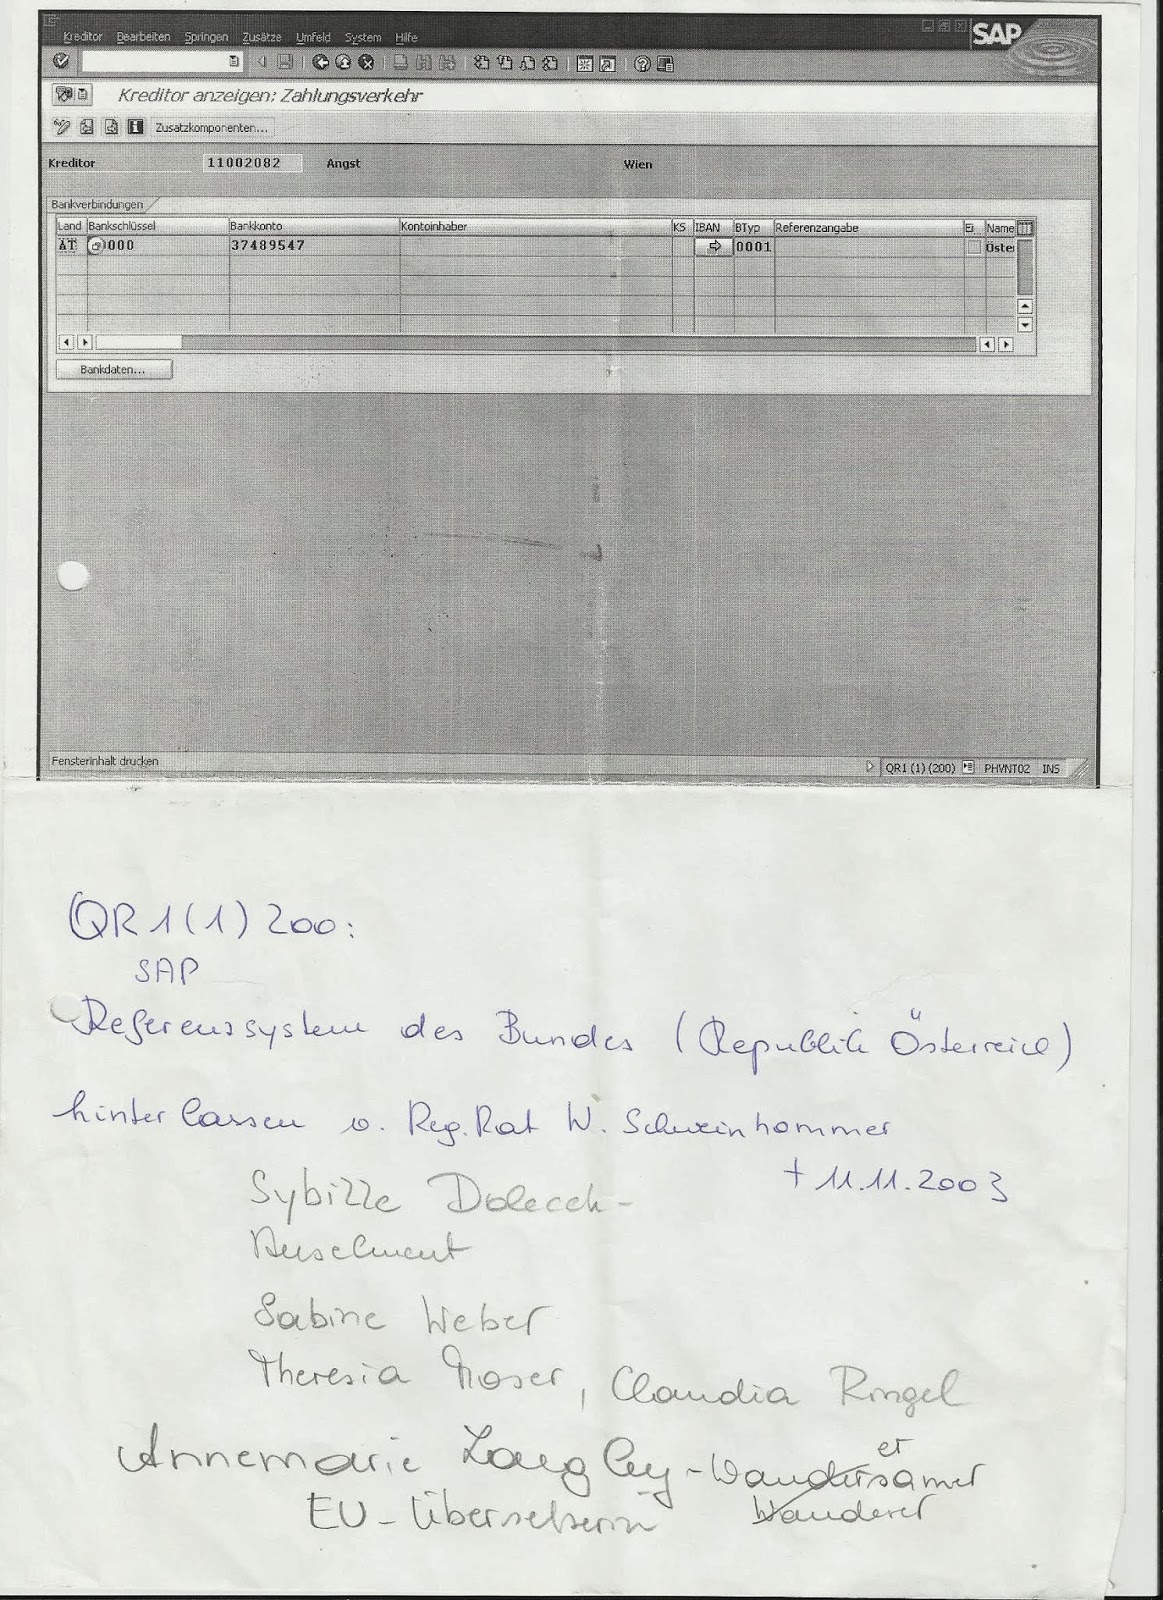 Kreditor Bearbeiten Springen Zusätze Umfeld System Hilfe
SAP
Kreditor anzeigen: Zahlungsverkehr
Zusatzkomponenten...
Kreditor 11002082 Angst Wien
Bankverbindungen
Land Bankschlüssel Bankkonto Kontoinhaber KS IBAN BTyp Referenzangabe Ei Name
AT 000 37489547 0001 Öster
Bankdaten...
Fensterinhalt drucken
QR1 (1) (200) PHVNT02 INS
QR 1 (1) 200:
SAP
Referenzsystem des Bundes (Republik Österreich)
hinterlassen v. Reg.Rat W. Schweinhammer
† 11.11.2003
Sybille Dolecek-
Anselment
Sabine Weber
Theresia Moser, Claudia Ringel
er
Annemarie -Wandersamer
EU-Übersetzerin Wanderer